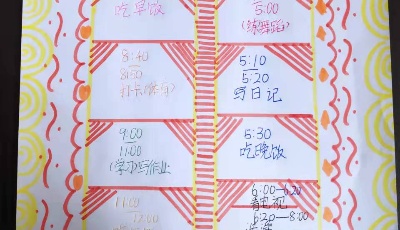 吃早饭
8:40
8:50
9:00
11:00
(学习)写作业
11:00
12:00
5:00
(练舞蹈)
5:10
5:20
写日记
5:30
吃晚饭
6:00—6:20
看电视
6:20—8:00